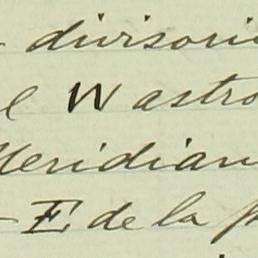 divisori
l W astro
Meridian
E de la p